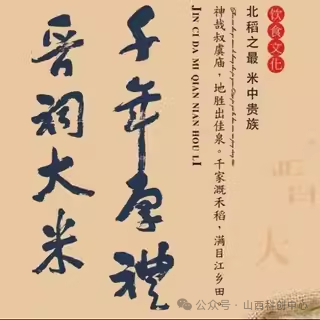 饮食文化
北稻之最 米中贵族
神哉叔虞庙，地胜出佳泉。千家溉禾稻，满目江乡田。
JIN CI DA MI QIAN NIAN HOU LI
千年厚礼
晋祠大米
晋
大
公众号·山西科创中心